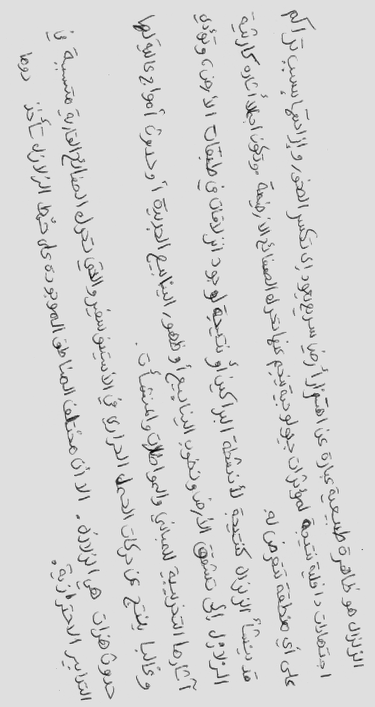 الزلزال هو ظاهرة طبيعية عبارة عن اهتزاز أرضي سريع يعود إلى تكسر الصخور وإزاحتها بسبب تراكم
اجتهادات داخلية نتيجة لمؤثرات جيولوجية ينجم عنها تحرك الصفائح الأرضية وتكون اجمالا آثاره كارثية
على أي منطقة تتعرض له
قد ينشأ الزلزال كنتيجة لأنشطة البراكين أو نتيجة لوجود انزلاقات في طبقات الأرض، وتؤدي
الزلازل إلى تشقق الأرض ونضوب الينابيع أو ظهور الينابيع الجديدة أو حدوث أمواج عالية
آثارها التخريبية للمباني والمواصلات والمنشآت.
وغالبا ينتج عن حركات الحمل الحراري في الأستينوسفير والتي تحرك الصفائح القارية متسببة في
حدوث هزات هي الزلازل. الا ان مختلف المناطق الموجودة على خط الزلازل تأخذ دوما
التدابير الاحترازية.